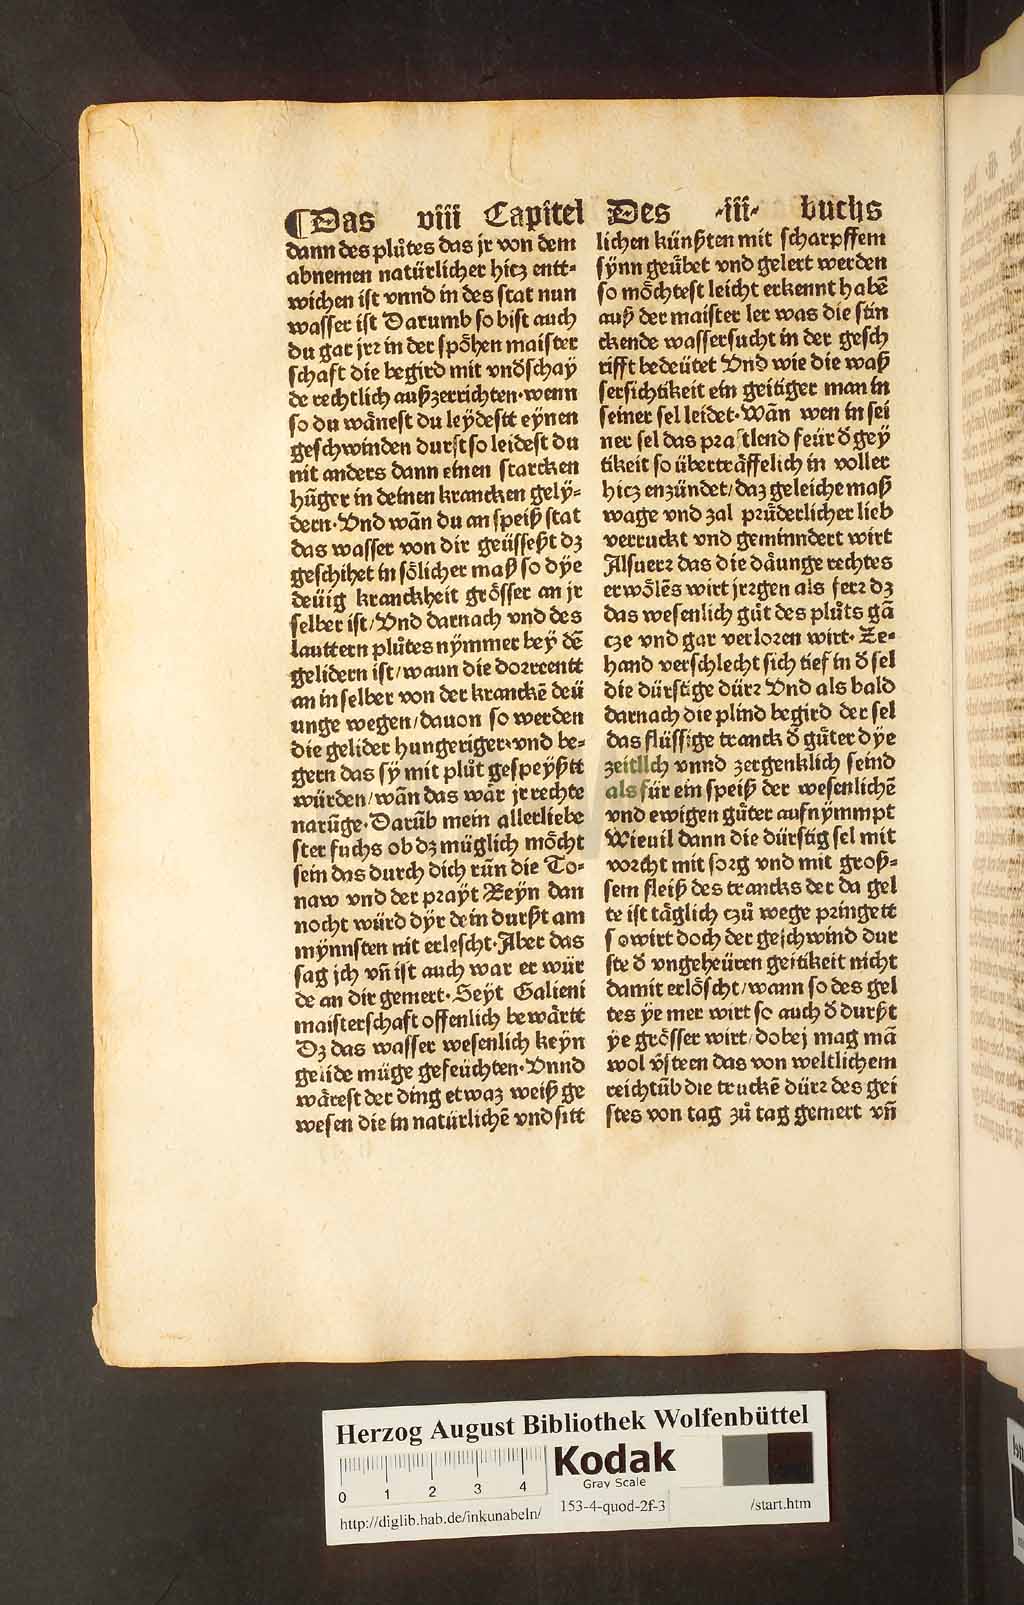 ¶Das viii Capitel Des ·iii· buchs
dann des plůtes das jr von dem
abnemen natürlicher hicz entt-
wichen ist vnnd in des stat nun
wasser ist Darumb so bist auch
du gar jrꝛ in der spȯ̈hen maister
schaft die begird mit vnďschaÿ
de rechtlich außzerrichten·wenn
so du wånest du leÿdestt eÿnen
geschwinden durst so leidest du
nit anders dann einen starcken
hūger in deinen krancken gelÿ-
dern·Vnd wān du an speiß stat
das wasser von dir geüssest dz
geschihet in sölicher maß so dÿe
deüig kranckheit grösser an jr
selber ist/Vnd darnach vnd des
lauttern plůtes nÿmmer beÿ dē
gelidern ist/waun die dorrcentt
an in selber von der kranckē deü
unge wegen/dauon so werden
die gelider hungeriger·vnd be-
gern das sÿ mit plůt gespeÿßtt
würden/wān das wär jr rechte
narūge·Darūb mein allerliebe
ster fuchs ob dz müglich möcht
sein das durch dich rūn die To-
naw vnd der praÿt Reÿn dan
nocht würd dÿr dein durßt am
mÿnnsten nit erlescht·Aber das
sag jch vn̄ ist auch war er wür
de an dir gemert·Seÿt Galieni
maisterschaft offenlich bewärtt
Dz das wasser wesenlich keÿn
gelide müge gefeüchten·Vnnd
wårest der ding etwaz weiß ge
wesen die in natürlichē vnd sitt
lichen künßten mit scharpffem
sÿnn geübet vnd gelert werden
so möchtest leicht erkennt habē
auß der maister ler was die stin
ckende wassersucht in der gesch
rifft bedeütet Vnd wie die waß
sersichtikeit ein geitiger man in
seiner sel leidet·Wān wen in sei
ner sel das prastlend feür ď geÿ
tikeit so überträffelich in voller
hicz enzündet/daz geleiche maß
wage vnd zal průderlicher lieb
verruckt vnd geminndert wirt
Alsuerꝛ das die däunge rechtes
erwölēs wirt jrꝛgen als ferꝛ dz
das wesenlich gůt des plůts gā
cze vnd gar verloren wirt· Ze-
hand verschlecht sich tief in ď sel
die dürstige dürꝛ Vnd als bald
darnach die plind begird der sel
das flüssige tranck ď gůter dÿe
zeitlich vnnd zergenklich seind
als für ein speiß der wesenlichē
vnd ewigen gůter aufnÿmmpt
Wieuil dann die dürstig sel mit
vorcht mit sorg vnd mit groß-
sem fleiß des trancks der da gel
te ist täglich czů wege pringett
so wirt doch der geschwind dur
ste ď vngeheüren geitikeit nicht
damit erlöscht/wann so des gel
tes ÿe mer wirt so auch ď durßt
ÿe grösser wirt/dobej mag mā
wol v̄steen das von weltlichem
reichtūb die truckē dürꝛ des gei
stes von tag zů tag gemert vn̄
Herzog August Bibliothek Wolfenbüttel
0 1 2 3 4
Kodak
Gray Scale
http://diglib.hab.de/inkunabeln/
153-4-quod-2f-3
/start.htm